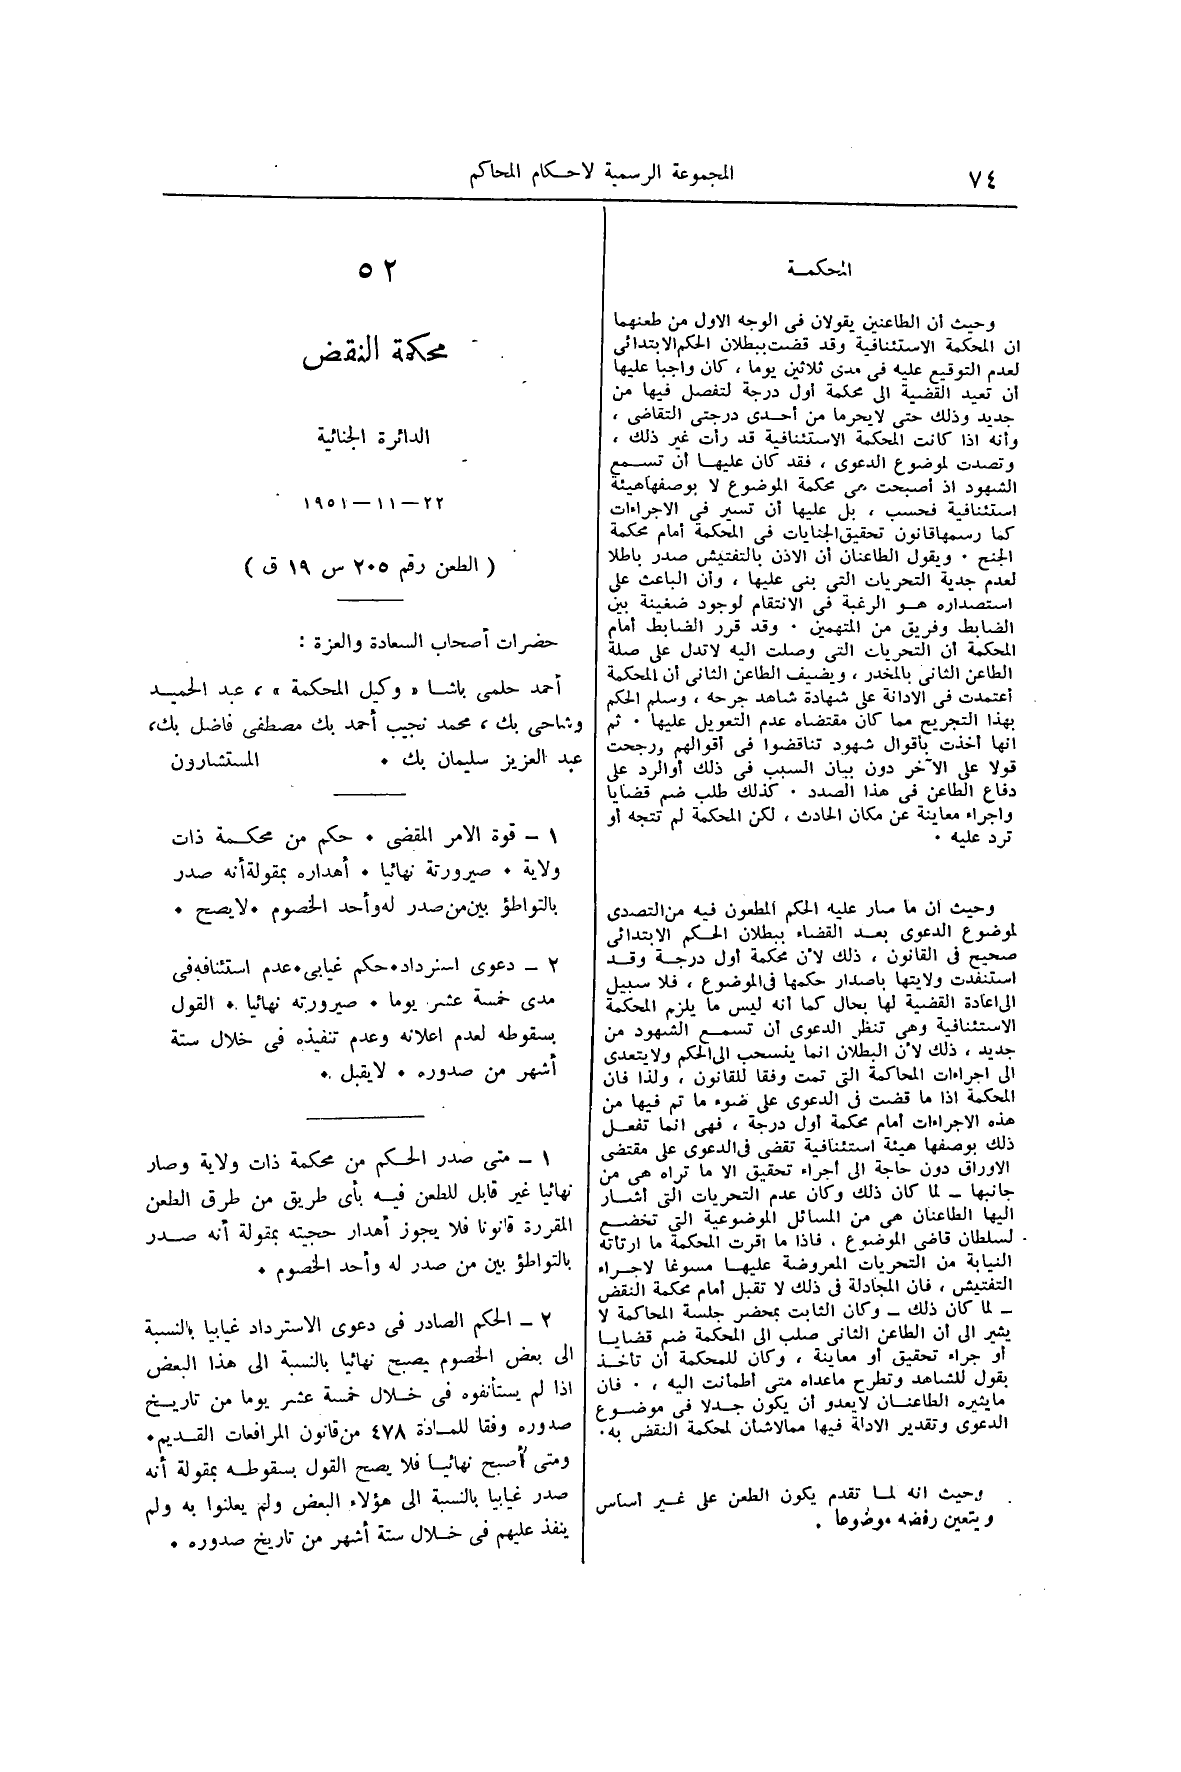 ٧٤
المجموعة الرسمية لاحكام المحاكم
المحكمة
وحيث أن الطاعنين يقولان فى الوجه الاول من طعنهما
ان المحكمة الاستئنافية وقد قضت ببطلان الحكم الابتدائى
لعدم التوقيع عليه فى مدى ثلاثين يوما ، كان واجبا عليها
أن تعيد القضية الى محكمة أول درجة لتفصل فيها من
جديد وذلك حتى لايحرما من أحدى درجتى التقاضى ،
وأنه اذا كانت المحكمة الاستئنافية قد رأت غير ذلك ،
وتصدت لموضوع الدعوى ، فقد كان عليها أن تسمع
الشهود اذ أصبحت هى محكمة الموضوع لا بوصفها هيئة
استئنافية فحسب ، بل عليها أن تسير فى الاجراءات
كما رسمها قانون تحقيق الجنايات فى المحكمة أمام محكمة
الجنح ٠ ويقول الطاعنان أن الاذن بالتفتيش صدر باطلا
لعدم جدية التحريات التى بنى عليها ، وأن الباعث على
استصداره هو الرغبة فى الانتقام لوجود ضغينة بين
الضابط وفريق من المتهمين ٠ وقد قرر الضابط أمام
المحكمة أن التحريات التى وصلت اليه لاتدل على صلة
الطاعن الثانى بالمخدر ، ويضيف الطاعن الثانى أن المحكمة
أعتمدت فى الادانة على شهادة شاهد جرحه ، وسلم الحكم
بهذا التجريح مما كان مقتضاه عدم التعويل عليها ٠ ثم
انها أخذت بأقوال شهود تناقضوا فى أقوالهم ورجحت
قولا على الآخر دون بيان السبب فى ذلك أوالرد على
دفاع الطاعن فى هذا الصدد ٠ كذلك طلب ضم قضايا
واجراء معاينة عن مكان الحادث ، لكن المحكمة لم تتجه أو
ترد عليه ٠
وحيث ان ما سار عليه الحكم المطعون فيه من التصدى
لموضوع الدعوى بعد القضاء ببطلان الحكم الابتدائى
صحيح فى القانون ، ذلك لأن محكمة أول درجة وقد
استنفدت ولايتها باصدار حكمها فى الموضوع ، فلا سبيل
الى اعادة القضية لها بحال كما أنه ليس ما يلزم المحكمة
الاستئنافية وهى تنظر الدعوى أن تسمع الشهود من
جديد ، ذلك لأن البطلان انما ينسحب الى الحكم ولايتعدى
الى اجراءات المحاكمة التى تمت وفقا للقانون ، ولذا فان
المحكمة اذا ما قضت فى الدعوى على ضوء ما تم فيها من
هذه الاجراءات أمام محكمة أول درجة ، فهى انما تفعل
ذلك بوصفها هيئة استئنافية تقضى فى الدعوى على مقتضى
الاوراق دون حاجة الى أجراء تحقيق الا ما تراه هى من
جانبها – لما كان ذلك وكان عدم التحريات التى أشار
اليها الطاعنان هى من المسائل الموضوعية التى تخضع
لسلطان قاضى الموضوع ، فاذا ما اقرت المحكمة ما ارتأته
النيابة من التحريات المعروضة عليها مسوغا لاجراء
التفتيش ، فان المجادلة فى ذلك لا تقبل أمام محكمة النقض
– لما كان ذلك – وكان الثابت بمحضر جلسة المحاكمة لا
يشير الى أن الطاعن الثانى صلب الى المحكمة ضم قضايا
أو جراء تحقيق أو معاينة ، وكان للمحكمة أن تأخذ
بقول للشاهد وتطرح ماعداه متى أطمانت اليه ، ٠ فان
مايثيره الطاعنان لايعدو أن يكون جدلا فى موضوع
الدعوى وتقدير الادلة فيها ممالاشأن لمحكمة النقض به٠
وحيث انه لما تقدم يكون الطعن على غير أساس
ويتعين رفضه موضوعا .
٥٢
محكمة النقض
الدائرة الجنائية
٢٢–١١–١٩٥١
( الطعن رقم ٢٠٥ س ١٩ ق )
حضرات أصحاب السعادة والعزة :
أحمد حلمى باشا « وكيل المحكمة » ، عبد الحميد
وشاحى بك ، محمد نجيب أحمد بك مصطفى فاضل بك،
عبد العزيز سليمان بك ٠ المستشارون
١ – قوة الامر المقضى ٠ حكم من محكمة ذات
ولاية ٠ صيرورتة نهائيا ٠ أهداره بمقولة أنه صدر
بالتواطؤ بين من صدر له وأحد الخصوم ٠ لايصح ٠
٢ – دعوى استرداد٠حكم غيابى٠عدم استئنافه فى
مدى خمسة عشر يوما ٠ صيرورته نهائيا ٠ القول
بسقوطه لعدم اعلانه وعدم تنفيذه فى خلال ستة
أشهر من صدوره ٠ لايقبل ٠
١ – متى صدر الحكم من محكمة ذات ولاية وصار
نهائيا غير قابل للطعن فيه بأى طريق من طرق الطعن
المقررة قانونا فلا يجوز أهدار حجيته بمقولة أنه صدر
بالتواطؤ بين من صدر له وأحد الخصوم ٠
٢ – الحكم الصادر فى دعوى الاسترداد غيابيا بالنسبة
الى بعض الخصوم يصبح نهائيا بالنسبة الى هذا البعض
اذا لم يستأنفوه فى خلال خمسة عشر يوما من تاريخ
صدوره وفقا للمادة ٤٧٨ من قانون المرافعات القديم٠
ومتى أصبح نهائيا فلا يصح القول بسقوطه بمقولة أنه
صدر غيابيا بالنسبة الى هؤلاء البعض ولم يعلنوا به ولم
ينفذ عليهم فى خلال ستة أشهر من تاريخ صدوره ٠